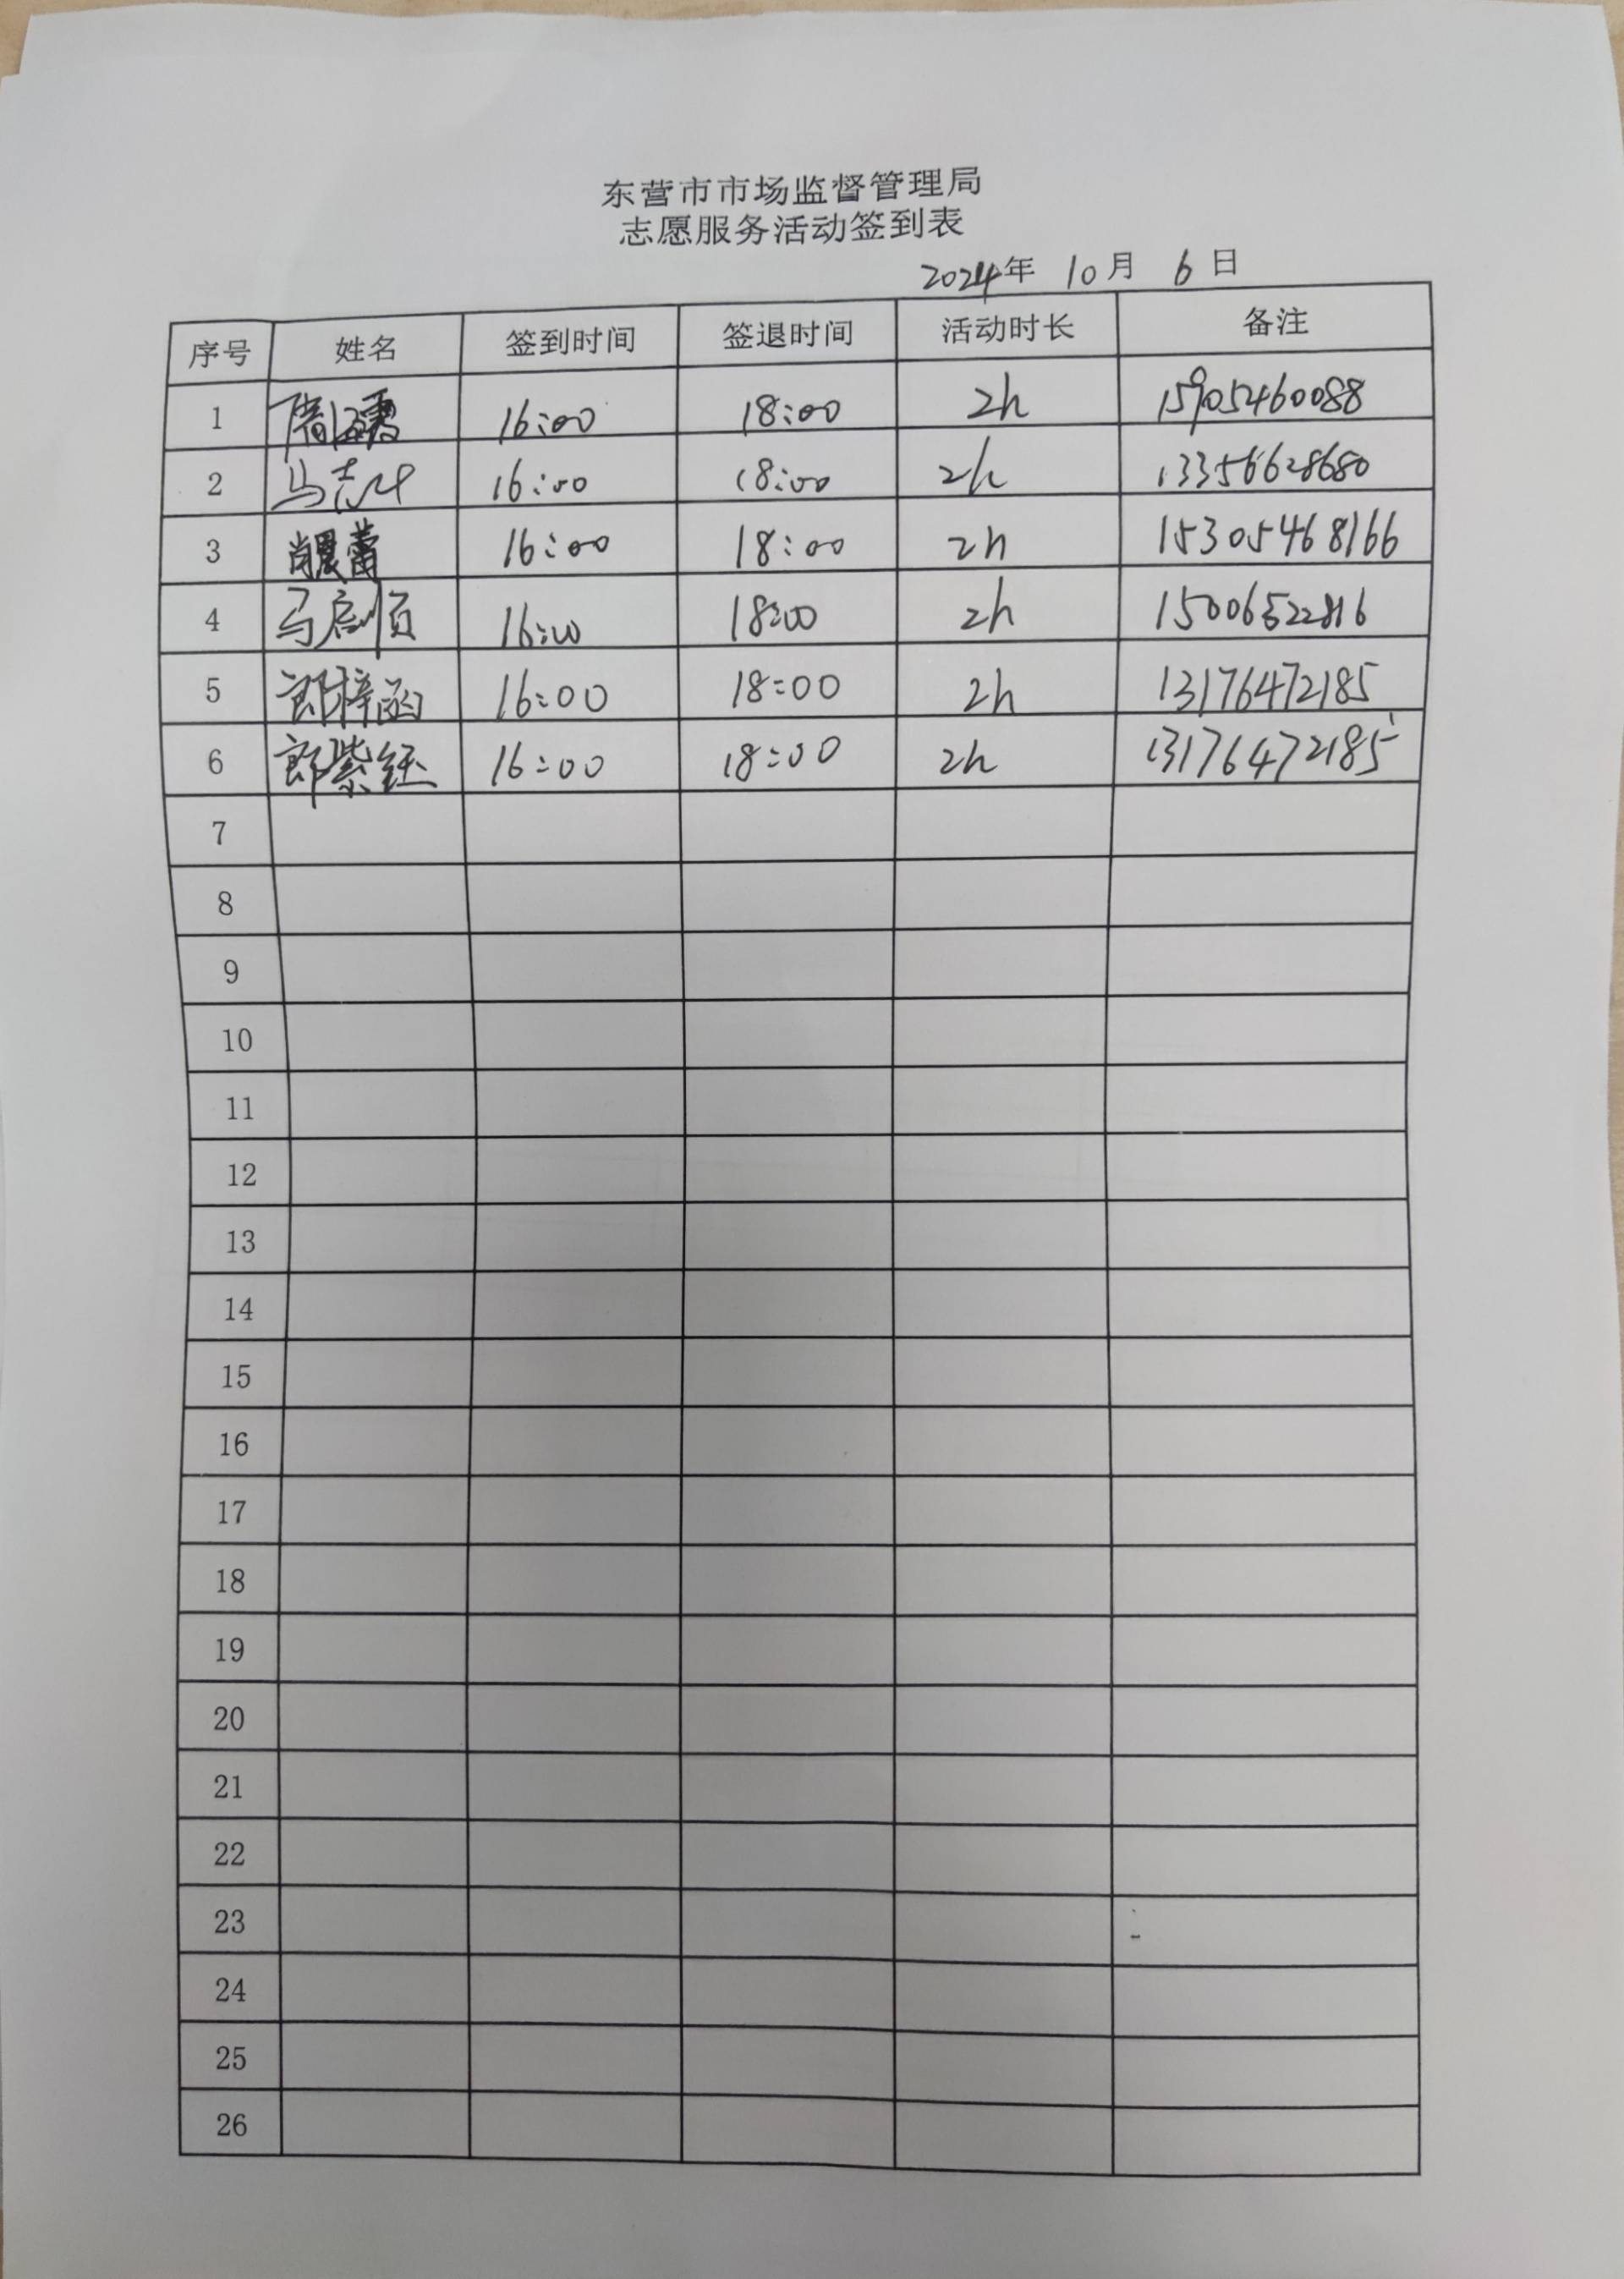 东营市市场监督管理局
志愿服务活动签到表
2024年 10月 6日
序号 姓名 签到时间 签退时间 活动时长 备注
1 16:00 18:00 2h 15905460088
2 马志 16:00 18:00 2h 13356628680
3 肖晨蕾 16:00 18:00 2h 15305468166
4 马启顺 16:00 18:00 2h 15006522816
5 郎梓函 16:00 18:00 2h 13176472185
6 郎紫钰 16:00 18:00 2h 13176472185
7
8
9
10
11
12
13
14
15
16
17
18
19
20
21
22
23
24
25
26